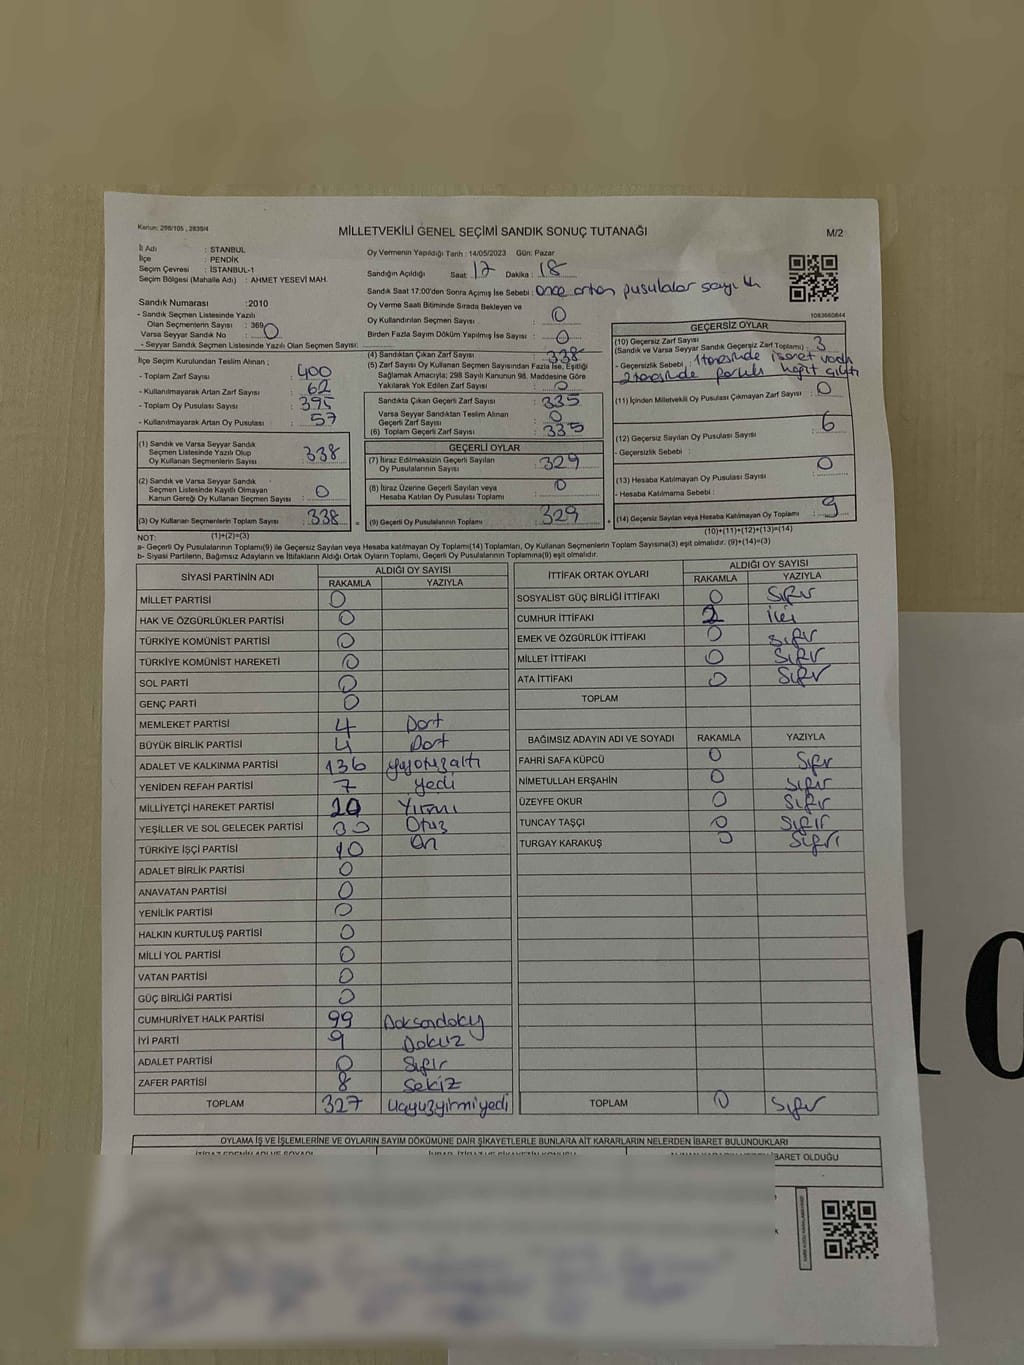 Kanun: 298/105 , 2839/4
MİLLETVEKİLİ GENEL SEÇİMİ SANDIK SONUÇ TUTANAĞI
M/2
İl Adı : STANBUL
İlçe : PENDİK
Seçim Çevresi : İSTANBUL-1
Seçim Bölgesi (Mahalle Adı) : AHMET YESEVİ MAH.
Oy Vermenin Yapıldığı Tarih : 14/05/2023 Gün: Pazar
Sandığın Açıldığı Saat: 17 Dakika : 18
Sandık Saat 17:00'den Sonra Açılmış İse Sebebi : Önce artan pusulalar
Oy Verme Saati Bitiminde Sırada Bekleyen ve
Oy Kullandırılan Seçmen Sayısı : 0
Birden Fazla Sayım Döküm Yapılmış İse Sayısı : 0
1083660844
Sandık Numarası :2010
- Sandık Seçmen Listesinde Yazılı
Olan Seçmenlerin Sayısı : 369
Varsa Seyyar Sandık No : 0
- Seyyar Sandık Seçmen Listesinde Yazılı Olan Seçmen Sayısı:
İlçe Seçim Kurulundan Teslim Alınan ;
- Toplam Zarf Sayısı : 400
- Kullanılmayarak Artan Zarf Sayısı : 62
- Toplam Oy Pusulası Sayısı : 395
- Kullanılmayarak Artan Oy Pusulası : 57
(1) Sandık ve Varsa Seyyar Sandık
Seçmen Listesinde Yazılı Olup
Oy Kullanan Seçmenlerin Sayısı : 338
(2) Sandık ve Varsa Seyyar Sandık
Seçmen Listesinde Kayıtlı Olmayan
Kanun Gereği Oy Kullanan Seçmen Sayısı : 0
(3) Oy Kullanan Seçmenlerin Toplam Sayısı : 338
(4) Sandıktan Çıkan Zarf Sayısı : 338
(5) Zarf Sayısı Oy Kullanan Seçmen Sayısından Fazla İse, Eşitliği
Sağlamak Amacıyla; 298 Sayılı Kanunun 98. Maddesine Göre
Yakılarak Yok Edilen Zarf Sayısı : 0
Sandıkta Çıkan Geçerli Zarf Sayısı : 335
Varsa Seyyar Sandıktan Teslim Alınan
Geçerli Zarf Sayısı : 0
(6) Toplam Geçerli Zarf Sayısı : 335
GEÇERLİ OYLAR
(7) İtiraz Edilmeksizin Geçerli Sayılan
Oy Pusulalarının Sayısı : 329
(8) İtiraz Üzerine Geçerli Sayılan veya
Hesaba Katılan Oy Pusulası Toplamı : 0
(9) Geçerli Oy Pusulalarının Toplamı : 329
GEÇERSİZ OYLAR
(10) Geçersiz Zarf Sayısı
(Sandık ve Varsa Seyyar Sandık Geçersiz Zarf Toplamı) : 3
- Geçersizlik Sebebi : 1 tanesinde işaret vardı
2 tanesinde
(11) İçinden Milletvekili Oy Pusulası Çıkmayan Zarf Sayısı : 0
(12) Geçersiz Sayılan Oy Pusulası Sayısı : 6
- Geçersizlik Sebebi :
(13) Hesaba Katılmayan Oy Pusulası Sayısı : 0
- Hesaba Katılmama Sebebi :
(14) Geçersiz Sayılan veya Hesaba Katılmayan Oy Toplamı : 9
NOT: (1)+(2)=(3)
(10)+(11)+(12)+(13)=(14)
a- Geçerli Oy Pusulalarının Toplamı(9) ile Geçersiz Sayılan veya Hesaba katılmayan Oy Toplamı(14) Toplamları, Oy Kullanan Seçmenlerin Toplam Sayısına(3) eşit olmalıdır. (9)+(14)=(3)
b- Siyasi Partilerin, Bağımsız Adayların ve İttifakların Aldığı Ortak Oyların Toplamı, Geçerli Oy Pusulalarının Toplamına(9) eşit olmalıdır.
SİYASİ PARTİNİN ADI ALDIĞI OY SAYISI
RAKAMLA YAZIYLA
MİLLET PARTİSİ 0
HAK VE ÖZGÜRLÜKLER PARTİSİ 0
TÜRKİYE KOMÜNİST PARTİSİ 0
TÜRKİYE KOMÜNİST HAREKETİ 0
SOL PARTİ 0
GENÇ PARTİ 0
MEMLEKET PARTİSİ 4 Dört
BÜYÜK BİRLİK PARTİSİ 4 Dört
ADALET VE KALKINMA PARTİSİ 136 yüzotuzaltı
YENİDEN REFAH PARTİSİ 7 yedi
MİLLİYETÇİ HAREKET PARTİSİ 20 Yirmi
YEŞİLLER VE SOL GELECEK PARTİSİ 30 Otuz
TÜRKİYE İŞÇİ PARTİSİ 10 On
ADALET BİRLİK PARTİSİ 0
ANAVATAN PARTİSİ 0
YENİLİK PARTİSİ 0
HALKIN KURTULUŞ PARTİSİ 0
MİLLİ YOL PARTİSİ 0
VATAN PARTİSİ 0
GÜÇ BİRLİĞİ PARTİSİ 0
CUMHURİYET HALK PARTİSİ 99
İYİ PARTİ 9 Dokuz
ADALET PARTİSİ 0 Sıfır
ZAFER PARTİSİ 8 Sekiz
TOPLAM 327 üçyüzyirmiyedi
İTTİFAK ORTAK OYLARI ALDIĞI OY SAYISI
RAKAMLA YAZIYLA
SOSYALİST GÜÇ BİRLİĞİ İTTİFAKI 0 Sıfır
CUMHUR İTTİFAKI 2 iki
EMEK VE ÖZGÜRLÜK İTTİFAKI 0 Sıfır
MİLLET İTTİFAKI 0 Sıfır
ATA İTTİFAKI 0 Sıfır
TOPLAM
BAĞIMSIZ ADAYIN ADI VE SOYADI RAKAMLA YAZIYLA
FAHRİ SAFA KÜPCÜ 0 Sıfır
NİMETULLAH ERŞAHİN 0 Sıfır
ÜZEYFE OKUR 0 Sıfır
TUNCAY TAŞÇI 0 Sıfır
TURGAY KARAKUŞ 0 Sıfır
TOPLAM 0 Sıfır
OYLAMA İŞ VE İŞLEMLERİNE VE OYLARIN SAYIM DÖKÜMÜNE DAİR ŞİKAYETLERLE BUNLARA AİT KARARLARIN NELERDEN İBARET BULUNDUKLARI
İBARET OLDUĞU
10